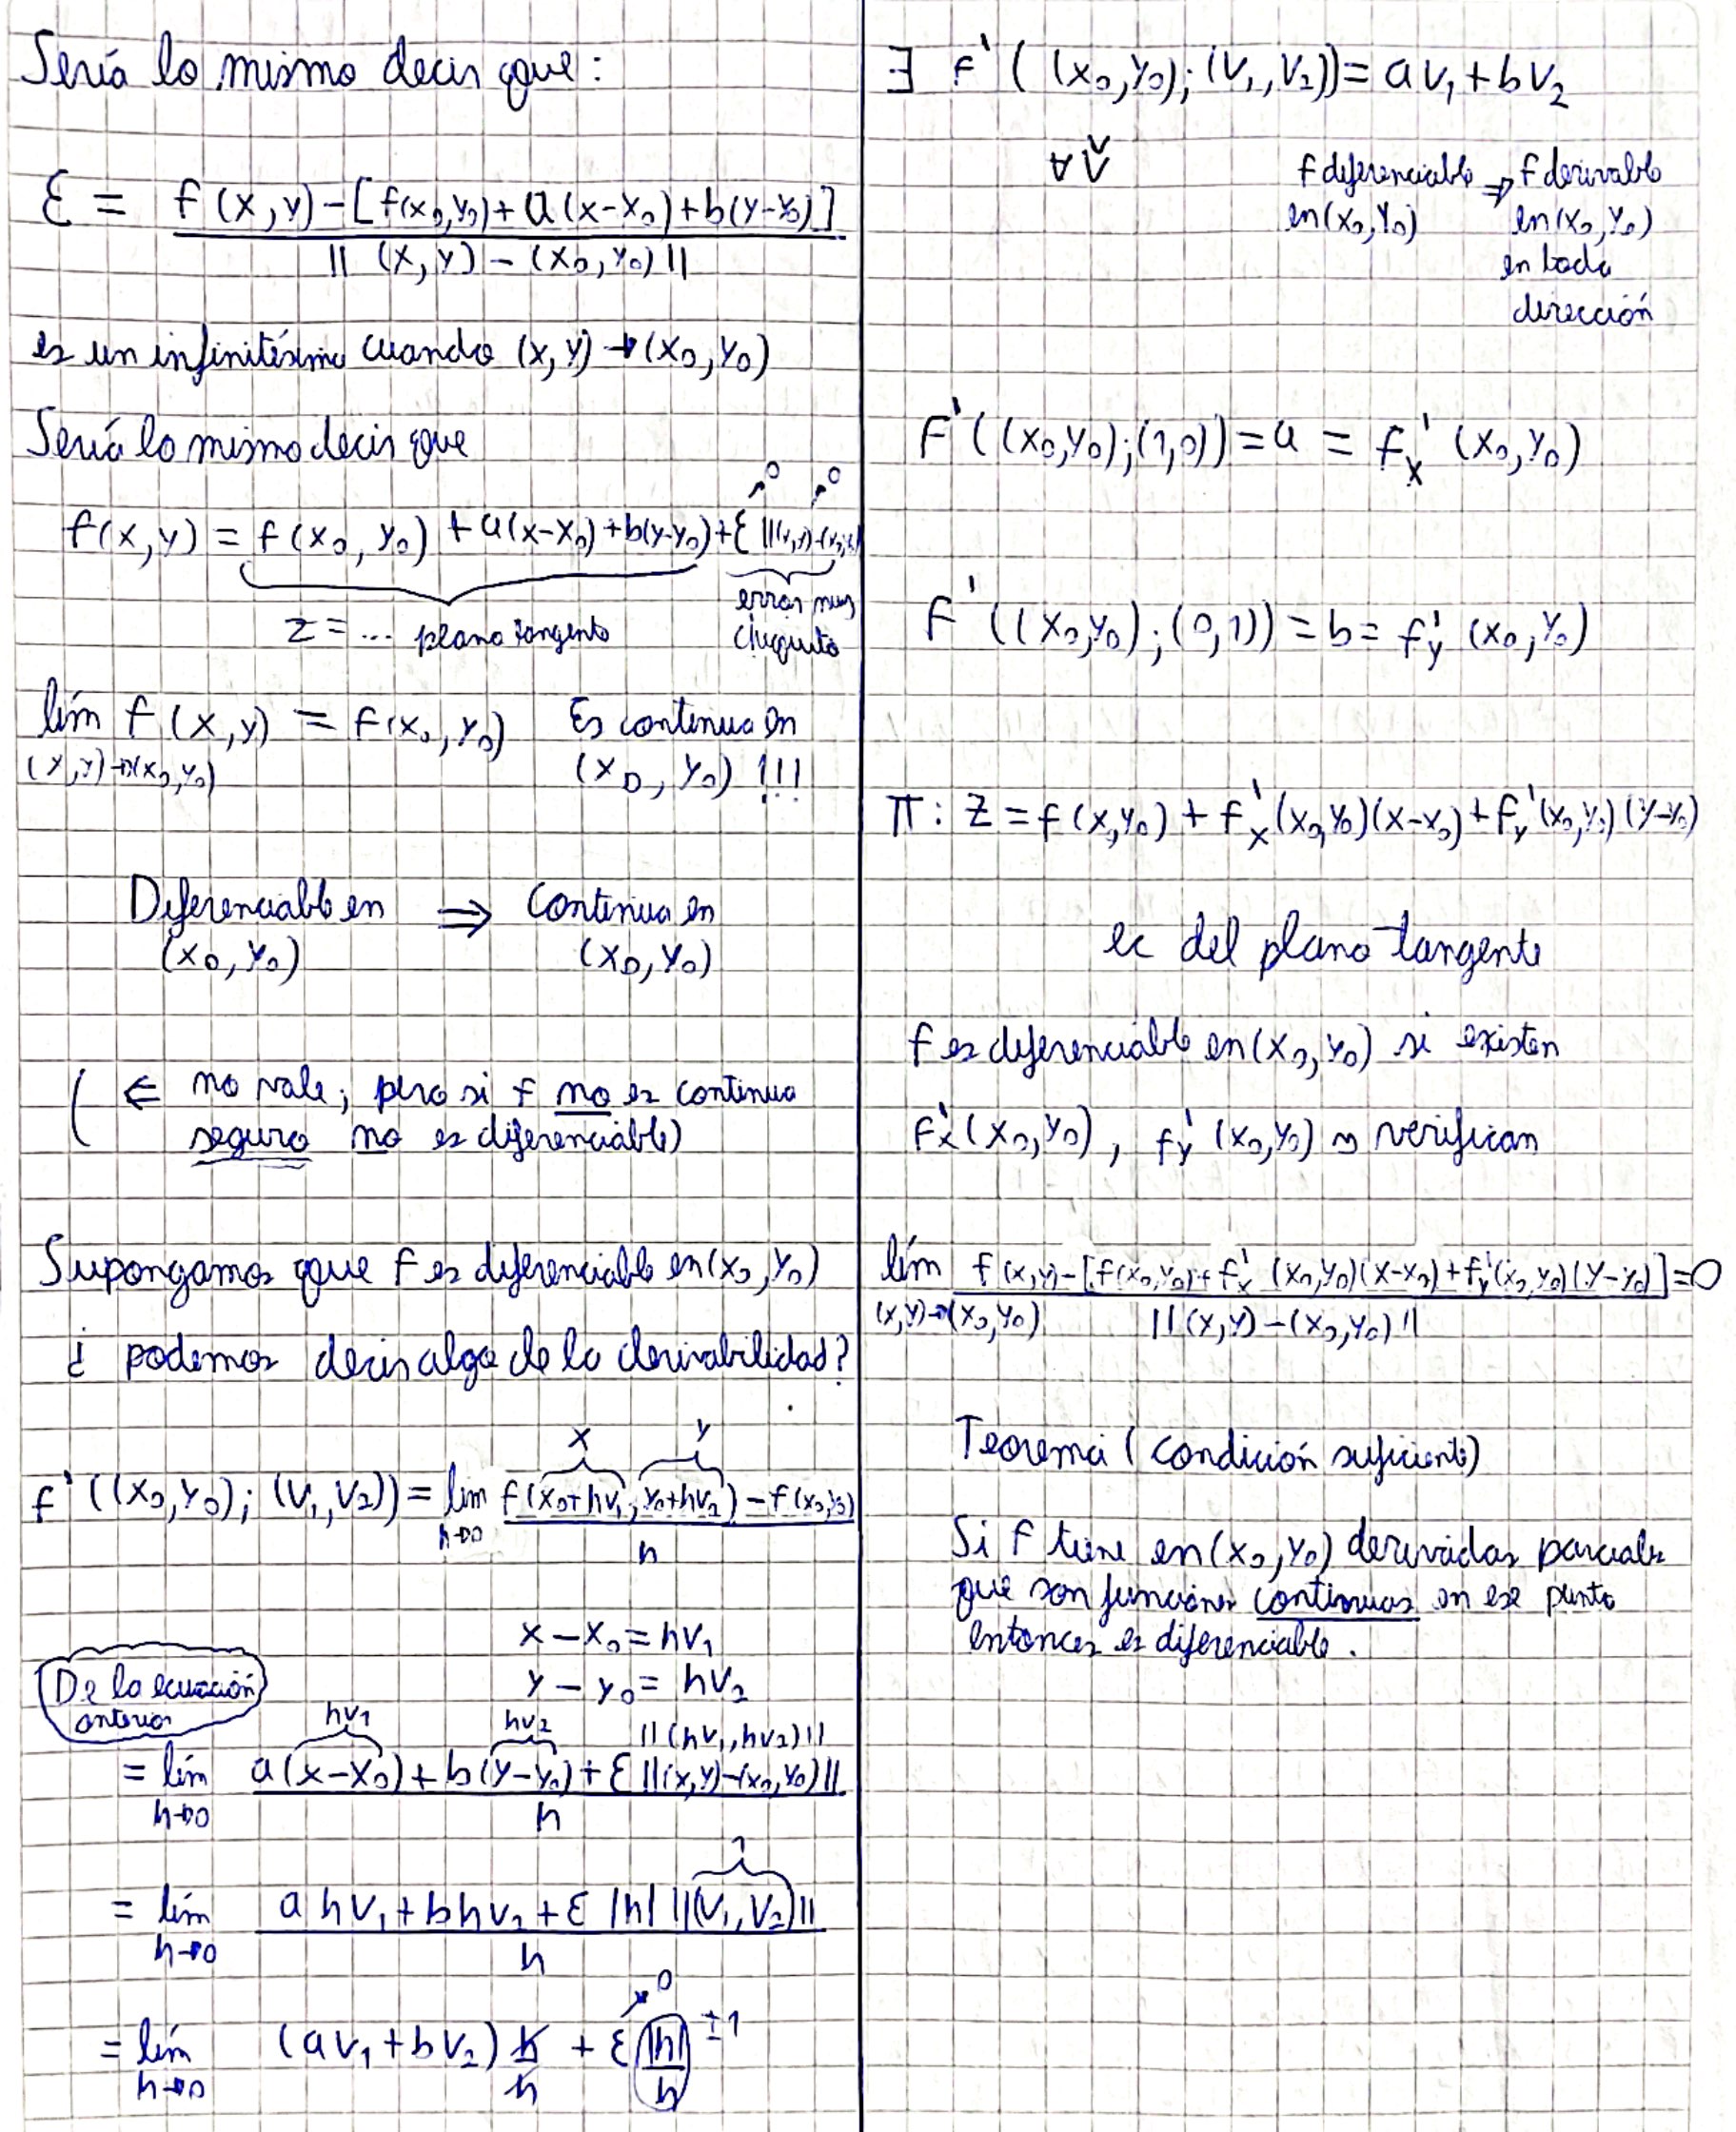 Sería lo mismo decir que:
ε = f(x,y)-[f(x₀,y₀)+a(x-x₀)+b(y-y₀)]
|| (x,y) - (x₀,y₀) ||
es un infinitésimo cuando (x,y)→(x₀,y₀)
Sería lo mismo decir que
→0 →0
f(x,y) = f(x₀,y₀) + a(x-x₀)+b(y-y₀)+ε ||(x,y)-(x₀,y₀)||
error muy
z = ... plano tangente chiquito
lím f(x,y) = f(x₀,y₀) Es continua en
(x,y)→(x₀,y₀) (x₀,y₀) !!!
Diferenciable en ⇒ Continua en
(x₀,y₀) (x₀,y₀)
( ⇐ no vale; pero si f no es continua
seguro no es diferenciable)
Supongamos que f es diferenciable en (x₀,y₀)
¿ podemos decir algo de la derivabilidad?
x y
f'((x₀,y₀); (v₁,v₂)) = lim f(x₀+hv₁, y₀+hv₂) - f(x₀,y₀)
h→0 h
x - x₀ = hv₁
De la ecuación y - y₀ = hv₂
anterior hv₁ hv₂ ||(hv₁,hv₂)||
= lím a(x-x₀)+b(y-y₀)+ε||(x,y)-(x₀,y₀)||
h→0 h
1
= lím a hv₁+bhv₂+ε |h| ||(v₁,v₂)||
h→0 h
→0
= lím (av₁+bv₂) h + ε |h| ±1
h→0 h h
∃ f'((x₀,y₀);(v₁,v₂)) = av₁+bv₂
∀ v̌ f diferenciable ⇒ f derivable
en (x₀,y₀) en (x₀,y₀)
en toda
dirección
F'((x₀,y₀);(1,0)) = a = fₓ'(x₀,y₀)
F'((x₀,y₀);(0,1)) = b = f'y (x₀,y₀)
π: z = f(x₀,y₀) + f'ₓ(x₀,y₀)(x-x₀)+f'y(x₀,y₀)(y-y₀)
ec del plano tangente
f es diferenciable en (x₀,y₀) si existen
f'ₓ(x₀,y₀), f'y (x₀,y₀) y verifican
lím f(x,y)-[f(x₀,y₀)+f'ₓ(x₀,y₀)(x-x₀)+f'y(x₀,y₀)(y-y₀)] = 0
(x,y)→(x₀,y₀) ||(x,y)-(x₀,y₀)||
Teorema (condición suficiente)
Si f tiene en (x₀,y₀) derivadas parciales
que son funciones continuas en ese punto
entonces es diferenciable.